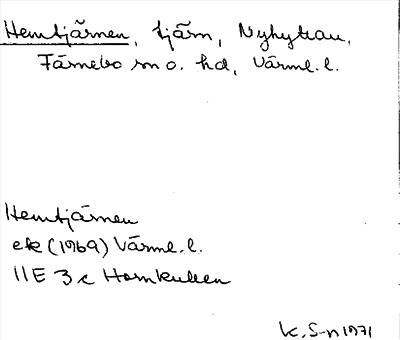 Hemtjärnen, tjärn, Nyhyttan,
Färnebo sn o. hd, Värml. l.
Hemtjärnen
ek (1969) Värml. l.
11E 3c Hornkullen
K. S-n 1971